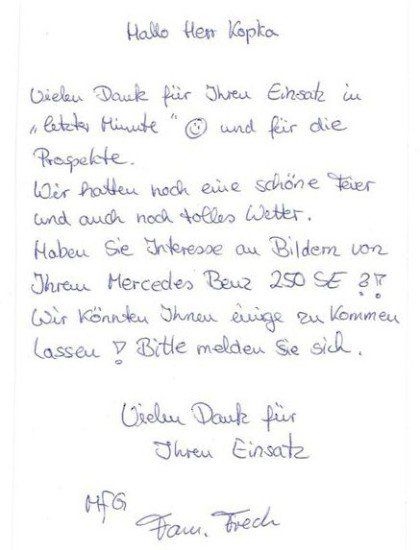 Hallo Herr Kopka
Vielen Dank für Ihren Einsatz in
„letzter Minute" ☺ und für die
Prospekte.
Wir hatten noch eine schöne Feier
und auch noch tolles Wetter.
Haben Sie Interesse an Bildern von
Ihrem Mercedes Benz 250 SE ?!
Wir könnten Ihnen einige zu kommen
lassen! Bitte melden Sie sich.
Vielen Dank für
Ihren Einsatz
MfG
Fam. Frech